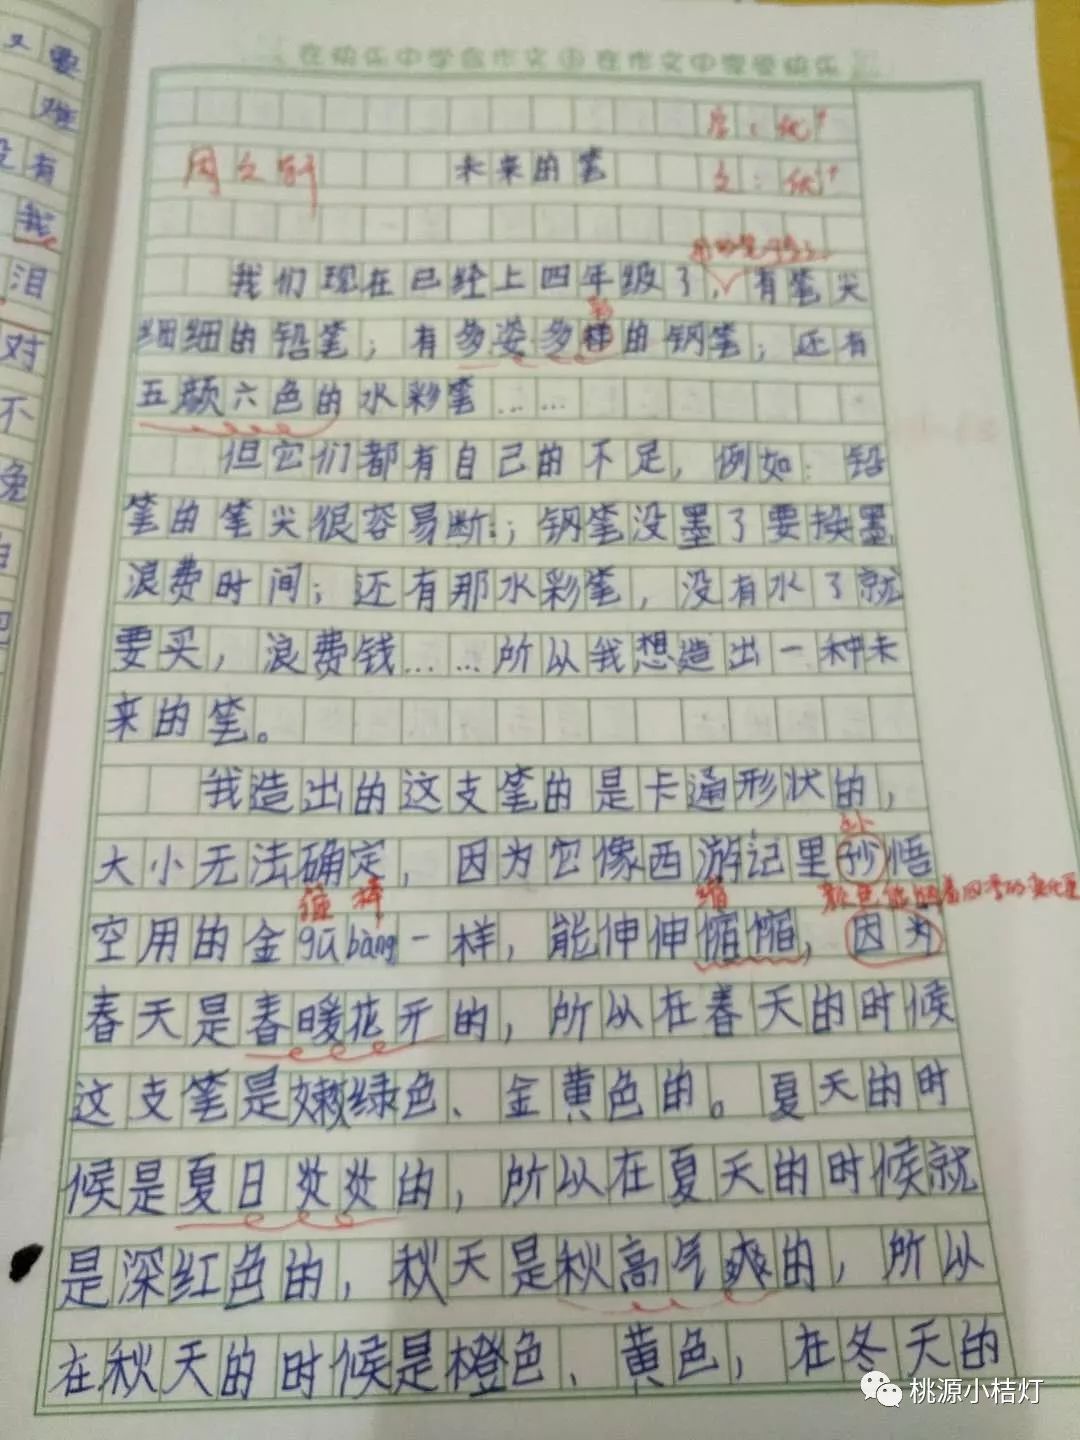 又要
难
没有
我
泪
对
不
免
在快乐中学会作文 在作文中享受快乐
字:优+
周之轩 未来的笔 文:优+
用的笔可多了
我们现在已经上四年级了,有笔尖
彩
细细的铅笔;有多姿多样的钢笔;还有
五颜六色的水彩笔……
但它们都有自己的不足,例如:铅
笔的笔尖很容易断;钢笔没墨了要换墨
浪费时间;还有那水彩笔,没有水了就
要买,浪费钱……所以我想造出一种未
来的笔。
我造出的这支笔的是卡通形状的,
大小无法确定,因为它像西游记里孙悟
箍棒 缩 颜色能随着四季的变化
空用的金gū bàng一样,能伸伸缩缩,因为
春天是春暖花开的,所以在春天的时候
这支笔是嫩绿色、金黄色的。夏天的时
候是夏日炎炎的,所以在夏天的时候就
是深红色的,秋天是秋高气爽的,所以
在秋天的时候是橙色、黄色,在冬天的
桃源小桔灯